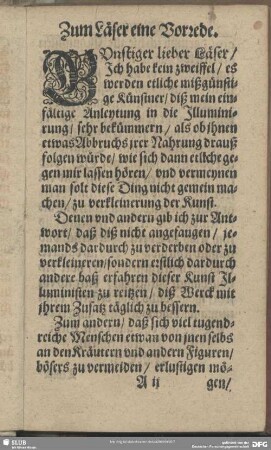 Zum Läser eine Vorrede.
GOnstiger lieber Läser/
Ich habe kein zweiffel/ es
werden etliche mißgünsti-
ge Künstner/ diß mein ein-
fältige Anleytung in die Illumini-
rung/ sehr bekümmern/ als ob ihnen
etwas Abbruchs jrer Nahrung drauß
folgen würde/ wie sich dann etliche ge-
gen mir lassen hören/ vnd vermeynen
man solt diese Ding nicht gemein ma-
chen/ zu verkleinerung der Kunst.
Denen vnd andern gib ich zur Ant-
wort/ daß diß nicht angefangen/ je-
mands dardurch zu verderben oder zu
verkleineren/ sondern erstlich dardurch
andere baß erfahren dieser Kunst Il-
luministen zu reitzen/ diß Werck mit
jhrem Zusatz täglich zu bessern.
Zum andern/ daß sich viel tugend-
reiche Menschen etwan von jnen selbs
an den Kräutern vnd andern Figuren/
bösers zu vermeiden/ erlustigen mö-
A ij gen/
SLUB
DFG